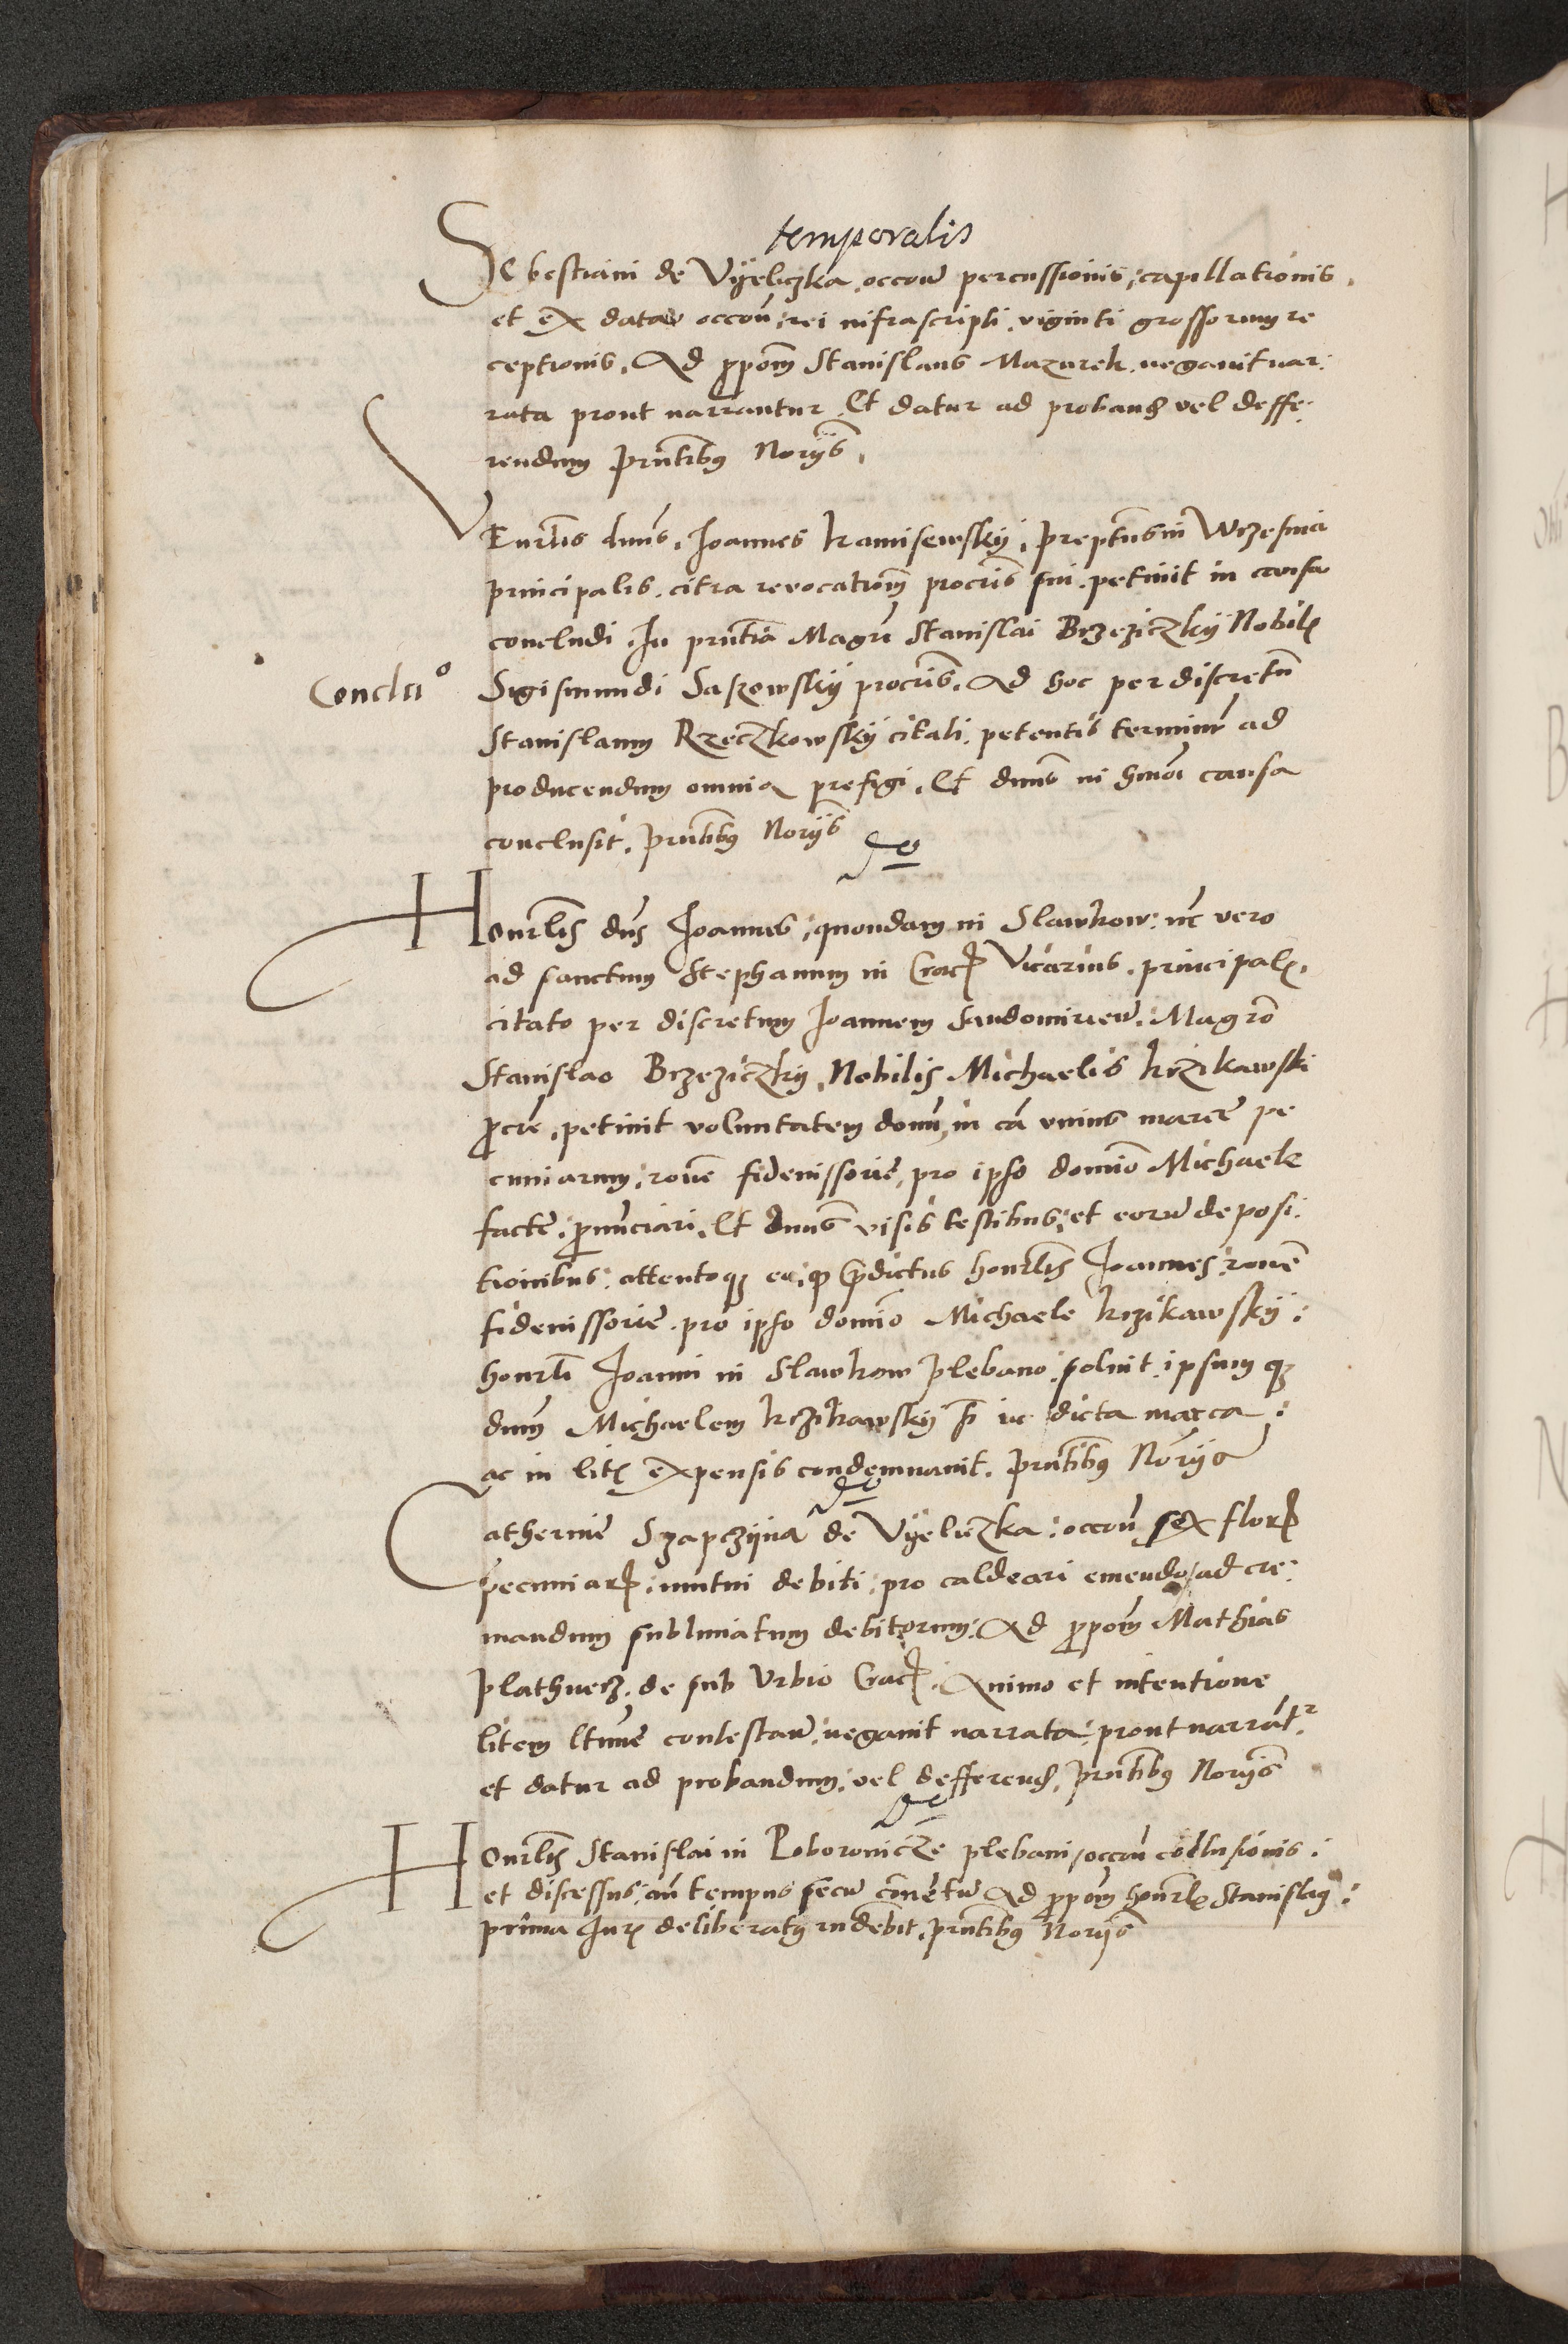 temporalis
Sebestiani de Vyeliczka occoũ percussionis, capillationis,
et ex data occoũ, rei infrascripti, viginti grossorum re
ceptionis, Ad ppom̃ Stanislaus Mazurek negavit nar:
rata prout narrantur Et datur ad proband vel deffe:
rendum pñtibus Norijs.
Veñrlis dñus Joannes kamisewskÿ prepťus in Wrzesnia
principalis citra revocatiom̃ procřis sui petivit in causa
concludi In pñtia Magři Stanislai BrzeziczkÿNobil
Conclu°
Sigismundi SaszowskÿProcřis Ad hoc per discretũ
Stanislaum Rzeczkowskÿ citati petentis terminũ ad
producendum omnia prefigi Et dñus in hmõi causa
conclusit pñtibus Norijs
de
Honrlis dñs Joannes quondam in Slawkow: nc vero
ad sanctum Stephanum in Crac Vicarius principal
citato per discretum Joannem Sandomirieñ Magřo
Stanislao Brzeziczky Nobilis Michaelis krzikawski
procře petivit voluntatem domi in cã unius marce pe
cuniarum, rõne fideiussorie, pro ipso domino Michaele
facte, pronũciari, Et dñus visis testibus, et eorũ deposi:
tionibus, attentoque eo, quod predictus honrlis Joannes rõne
fideiussorie pro ipso domino Michaele krzikawskÿ:
honrli Joanni in Slawkow plebano solvit, ipsumque
dñum Michaelem krzikawskÿ in dicta marca:
ac in lit expensis condemnavit pñtibus Norijs
de
Catherine Szapczÿna de Vÿeliczka: occoũ sex flor
pecuniar, mutui debiti pro caldeari emendo ad cre:
mandum sublimatum debitorum: Ad ppom̃ Mathias
plathnerz de sub Urbio Crac Animo et intentione
litem ltime contestañ, negavit narrata prout narrãtr
et datur ad probandum, vel defferend, pñtibus Norijs
de
Honrlis Stanislai in Poboroviczẽ plebani occoũ collusionis:
et discessus, añ tempus secũ cõventũ Ad ppom̃ honrl Stanislaus:
prima Jur deliberatus rñdebit, pñtibus Norijs